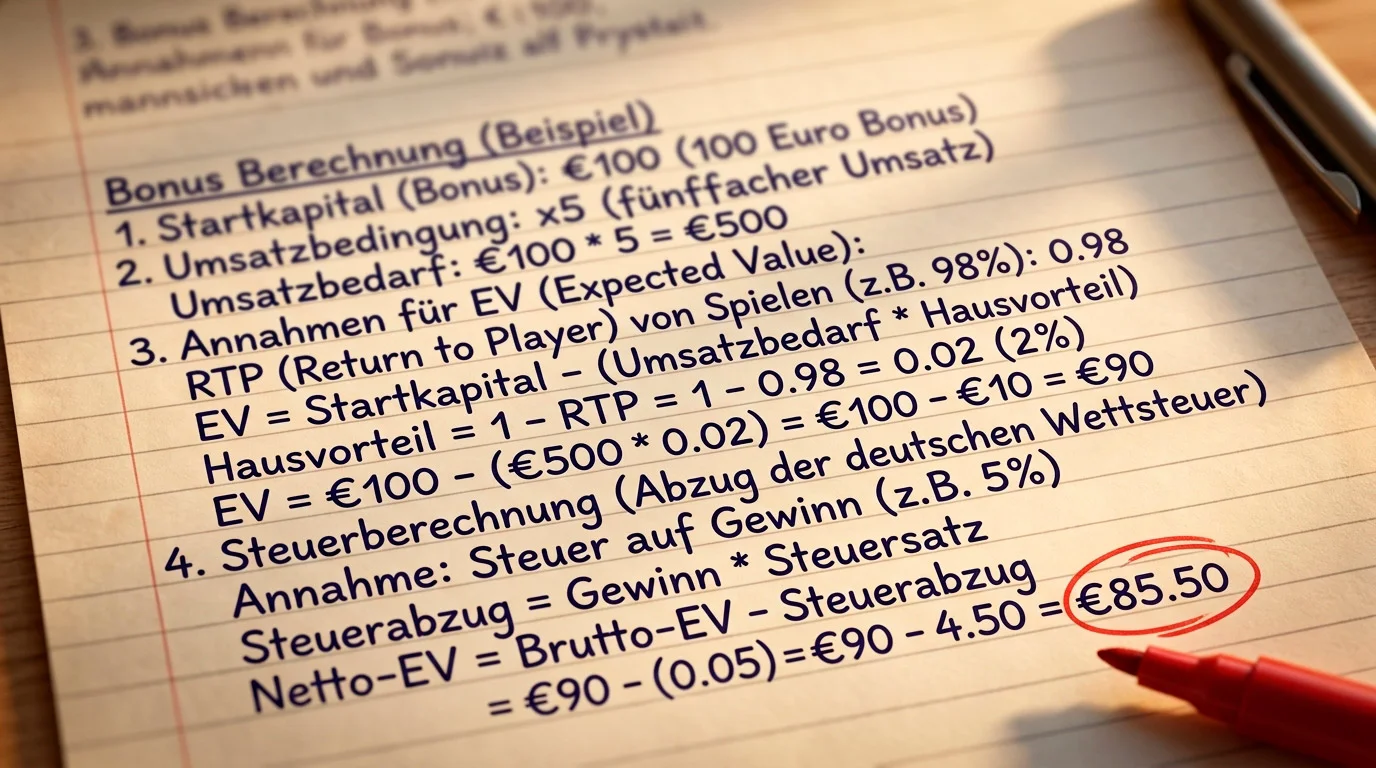 3. Bonus Berechnung
für Bonus, €
und
Bonus Berechnung (Beispiel)
1. Startkapital (Bonus): €100 (100 Euro Bonus)
2. Umsatzbedingung: x5 (fünffacher Umsatz)
Umsatzbedarf: €100 * 5 = €500
3. Annahmen für EV (Expected Value):
RTP (Return to Player) von Spielen (z.B. 98%): 0.98
EV = Startkapital – (Umsatzbedarf * Hausvorteil)
Hausvorteil = 1 – RTP = 1 – 0.98 = 0.02 (2%)
EV = €100 – (€500 * 0.02) = €100 – €10 = €90
4. Steuerberechnung (Abzug der deutschen Wettsteuer)
Annahme: Steuer auf Gewinn (z.B. 5%)
Steuerabzug = Gewinn * Steuersatz
Netto-EV = Brutto-EV – Steuerabzug
= €90 – (0.05) = €90 – 4.50 = €85.50